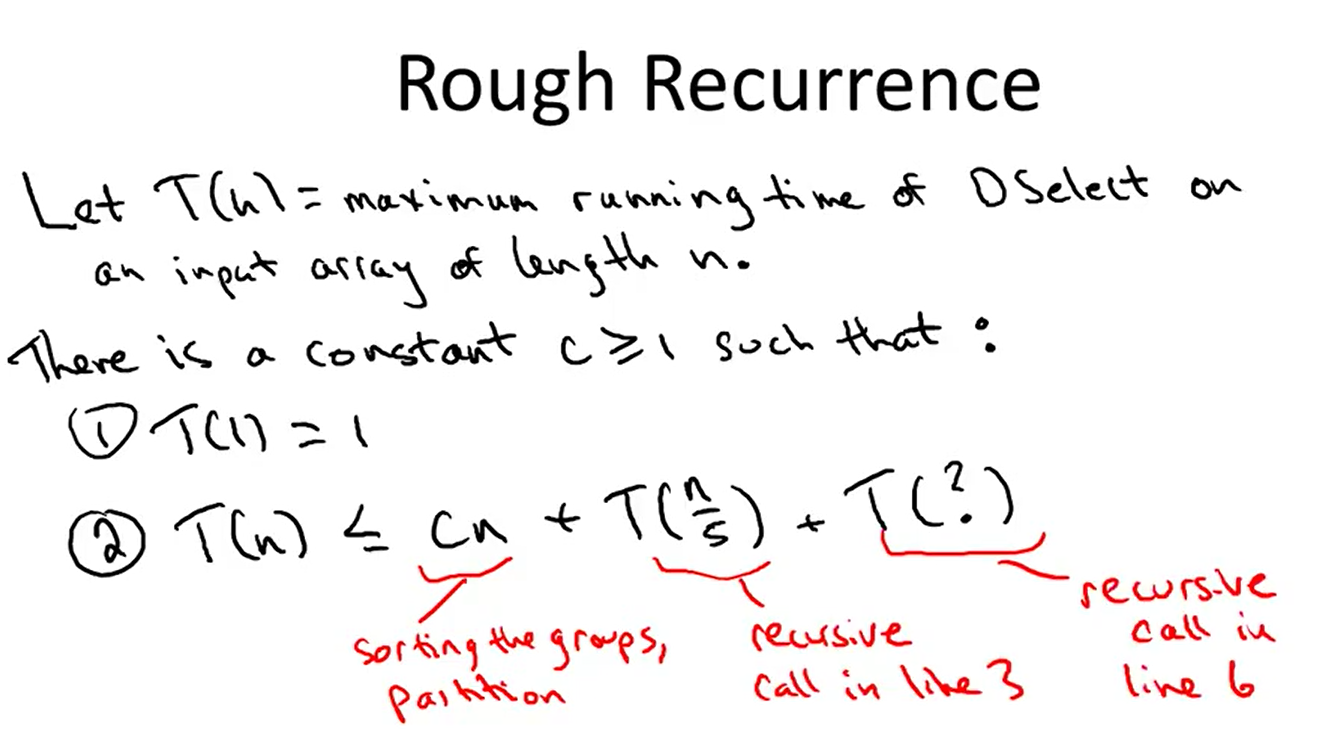 Rough Recurrence
Let T(n) = maximum running time of DSelect on
an input array of length n.
There is a constant c ≥ 1 such that :
① T(1) = 1
② T(n) ≤ cn + T(n/5) + T(?)
sorting the groups,
partition
recursive
call in line 3
recursive
call in
line 6